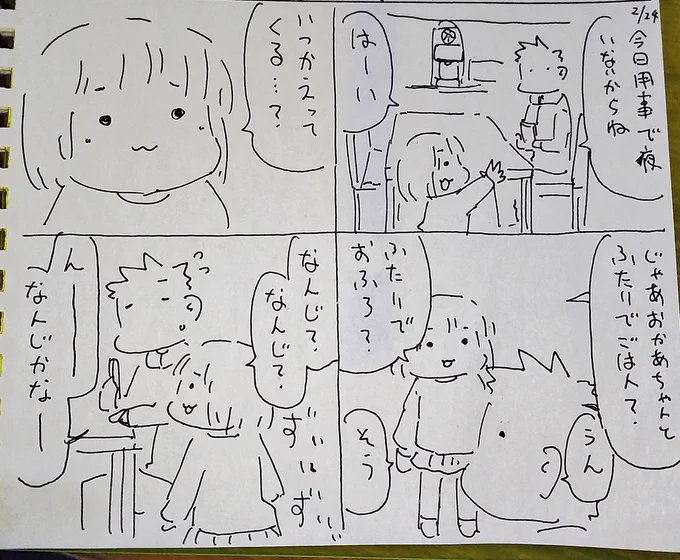 2/24
今日用事で夜
いないからね
はーい
じゃあおかあちゃんと
ふたりでごはん?
うん
ふたりで
おふろ?
そう
いつかえって
くる…?
なんじ?
なんじ?
ずいずい
んー
なんじかなー